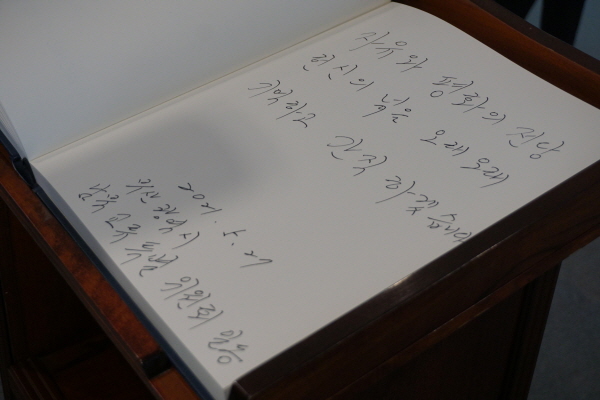 자유와 평화의 전당
헌신의 넋을 오래 오래
기억하고 간직 하겠습니다
2021. 5. 27
부산광역시
남북 교류 특별 위원회 일동